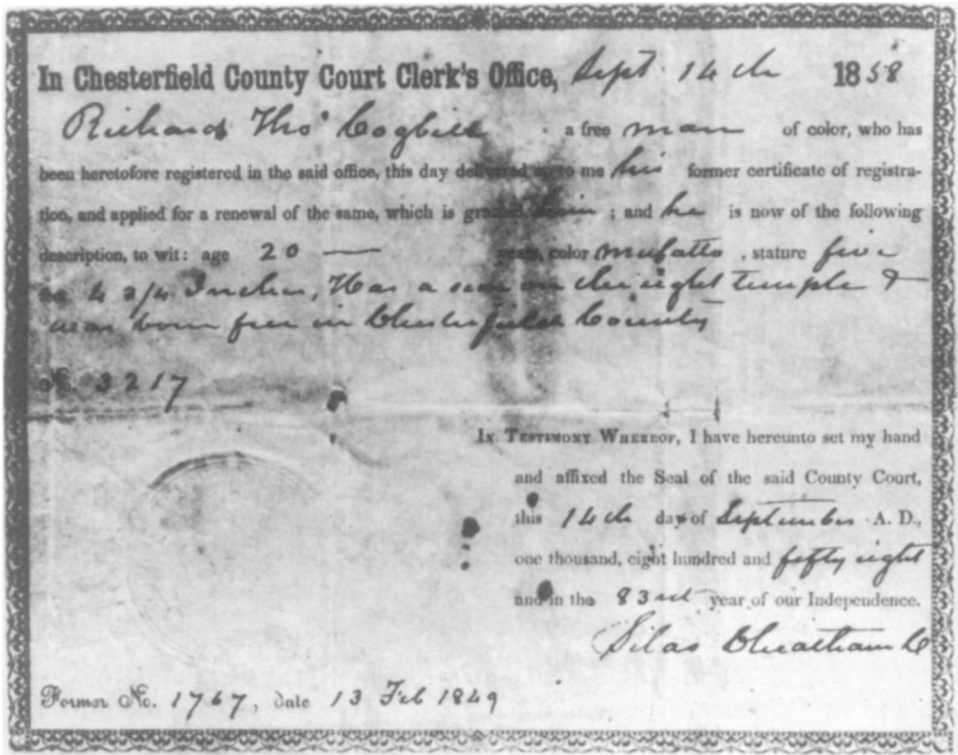 In Chesterfield County Court Clerk's Office, Sept 14th 1858
Richard Tho' Cogbill a free man of color, who has
been heretofore registered in the said office, this day delivered up to me his former certificate of registra-
tion, and applied for a renewal of the same, which is granted him ; and he is now of the following
description, to wit: age 20 — years, color mulatto , stature five
4 3/4 Inches, Has a scar on the right temple &
was born free in Chesterfield County
No. 3217
In Testimony Whereof, I have hereunto set my hand
and affixed the Seal of the said County Court,
this 14th day of September A. D.,
one thousand, eight hundred and fifty eight
and in the 83rd year of our Independence.
Silas Cheatham C
Former No. 1767, date 13 Feb 1849